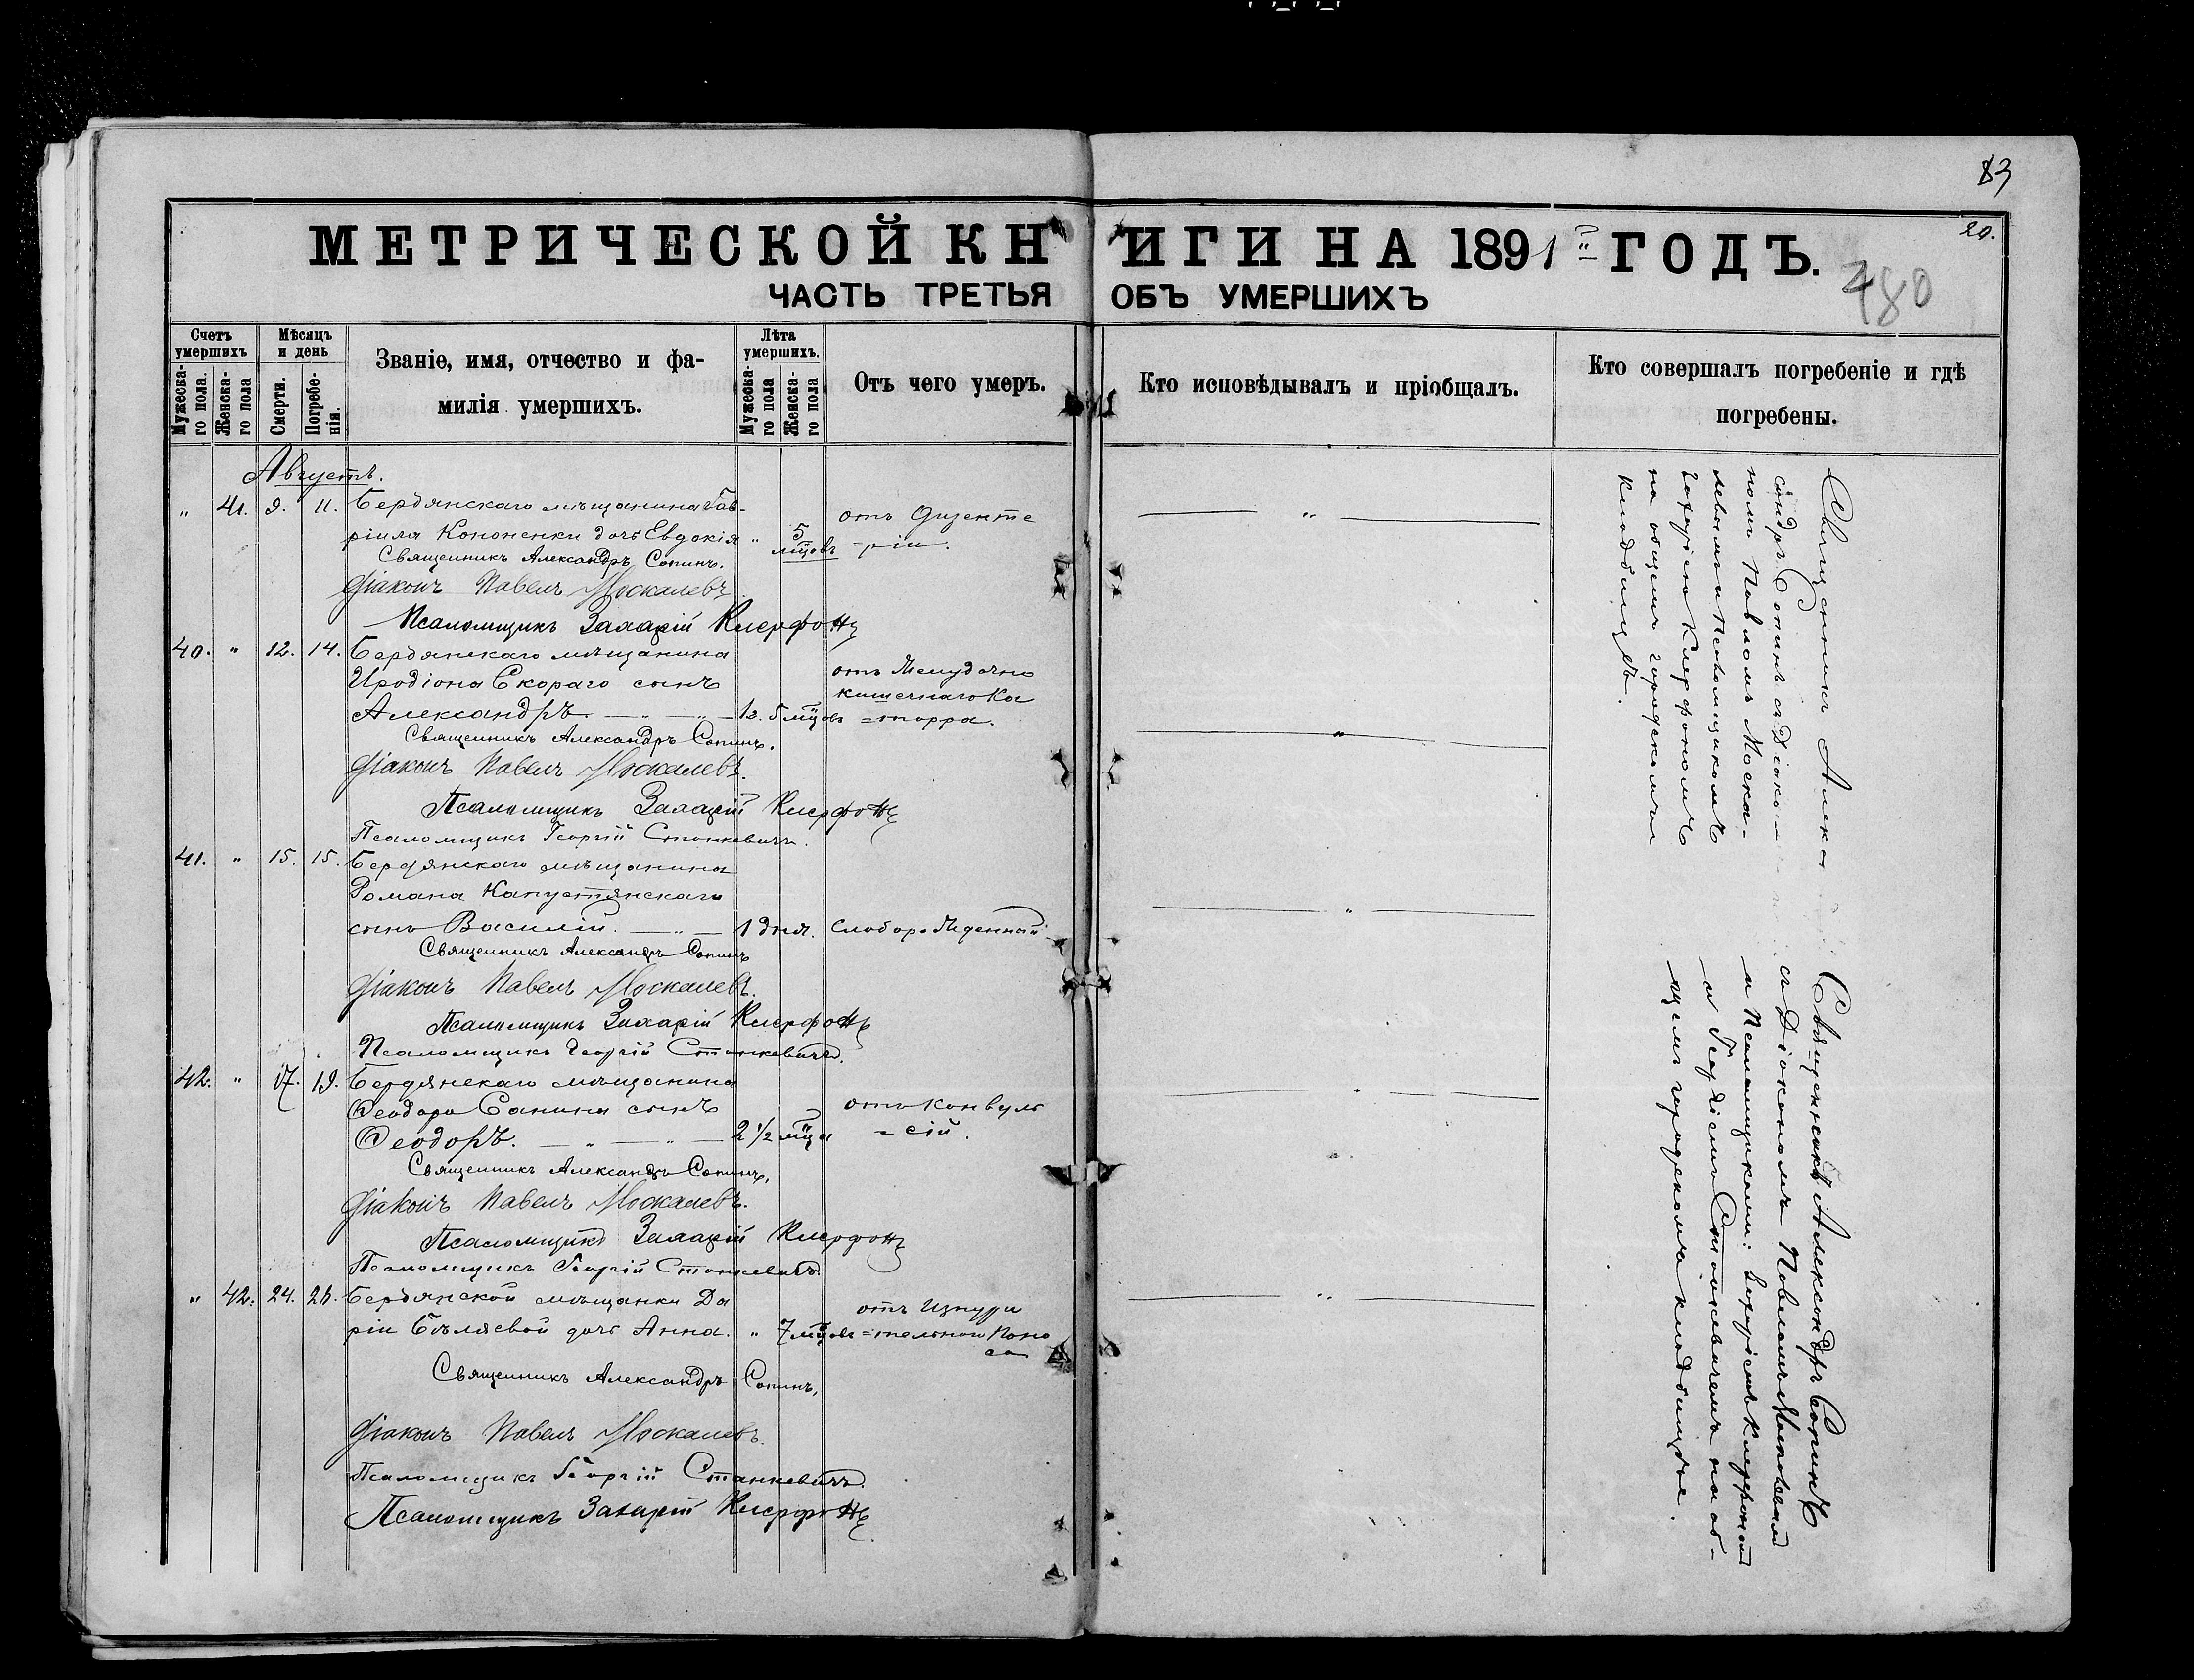 83
20.
МЕТРИЧЕСКОЙ КНИГИ НА 1891 ГОДЪ.
780
ЧАСТЬ ТРЕТЬЯ ОБЪ УМЕРШИХЪ
Счетъ умершихъ
Мужеска-го пола.
Женска-го пола
Мѣсяцъ и день
Смерти.
Погребе-нія.
Званіе, имя, отчество и фа-
милія умершихъ.
Лѣта умершихъ.
Мужеска-го пола
Женска-го пола
Отъ чего умеръ.
Кто исповѣдывалъ и пріобщалъ.
Кто совершалъ погребеніе и гдѣ
погребены.
Августъ.
" 41. 9. 11. Бердянскаго мѣщанина Гав-
ріила Кононенки дочь Евдокія " 5 мцовъ
отъ Дизенте
=ріи.
Священникъ Александръ Сопинъ.
Діаконъ Павелъ Москалевъ
Псаломщикъ Захарій Клерфонъ
40. " 12. 14. Бердянскаго мѣщанина
Иродіона Скораго сынъ
Александръ — " — " — 1г. 5 мцовъ
отъ Желудочно
кишечнаго Ка
=тарра.
Священникъ Александръ Сопинъ.
Діаконъ Павелъ Москалевъ.
Псаломщикъ Захарій Клерфонъ
Псаломщикъ Георгій Станкевичъ.
41. " 15. 15. Бердянскаго мѣщанина
Романа Капустянскаго
сынъ Василій. — " — 1 дня. Слаборожденный
Священникъ Александръ Сопинъ
Діаконъ Павелъ Москалевъ.
Псаломщикъ Захарій Клерфонъ
Псаломщикъ Георгій Станкевичъ.
42. " 17. 19. Бердянскаго мѣщанина
Ѳеодора Санина сынъ
Ѳеодоръ. — " — " — 2 1/2 мца
отъ конвуль
=сій.
Священникъ Александръ Сопинъ.
Діаконъ Павелъ Москалевъ.
Псаломщикъ Захарій Клерфонъ
Псаломщикъ Георгій Станкевичъ.
" 42. 24. 26. Бердянской мѣщанки Да
ріи Бѣляевой дочь Анна. " 7 мцовъ
отъ Изнури
=тельной поно
са
Священникъ Александръ Сопинъ,
Діаконъ Павелъ Москалевъ.
Псаломщикъ Георгій Станкевичъ.
Псаломщикъ Захарій Клерфонъ
Священникъ Алекса
сандръ Сопинъ съ Діако
номъ Павломъ Моска-
левымъ и Псаломщикомъ
Захаріею Клерфономъ
на общемъ городскомъ
кладбищѣ.
Священникъ Александръ Сопинъ
съ Діакономъ Павломъ Москалевымъ
и Псаломщиками: Захаріемъ Клерфономъ
и Георгіемъ Станкевичемъ на об-
щемъ городскомъ кладбищѣ.